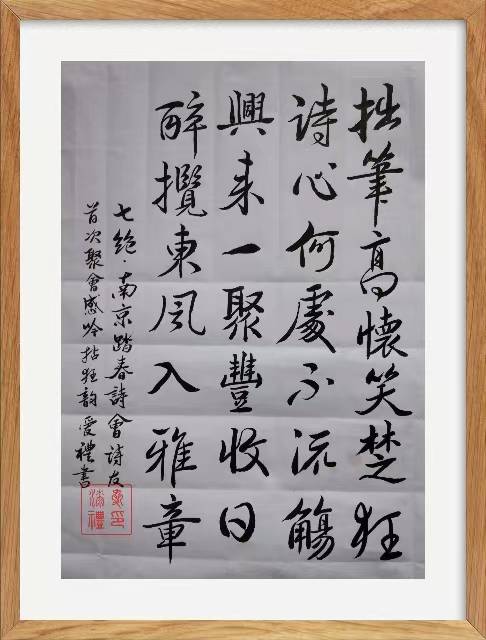 拙筆高懷笑楚狂
詩心何處不流觴
興来一聚豐收日
醉攬東风入雅章
七絕·南京踏春詩會詩友
首次聚會感吟拈狂韵愛禮書